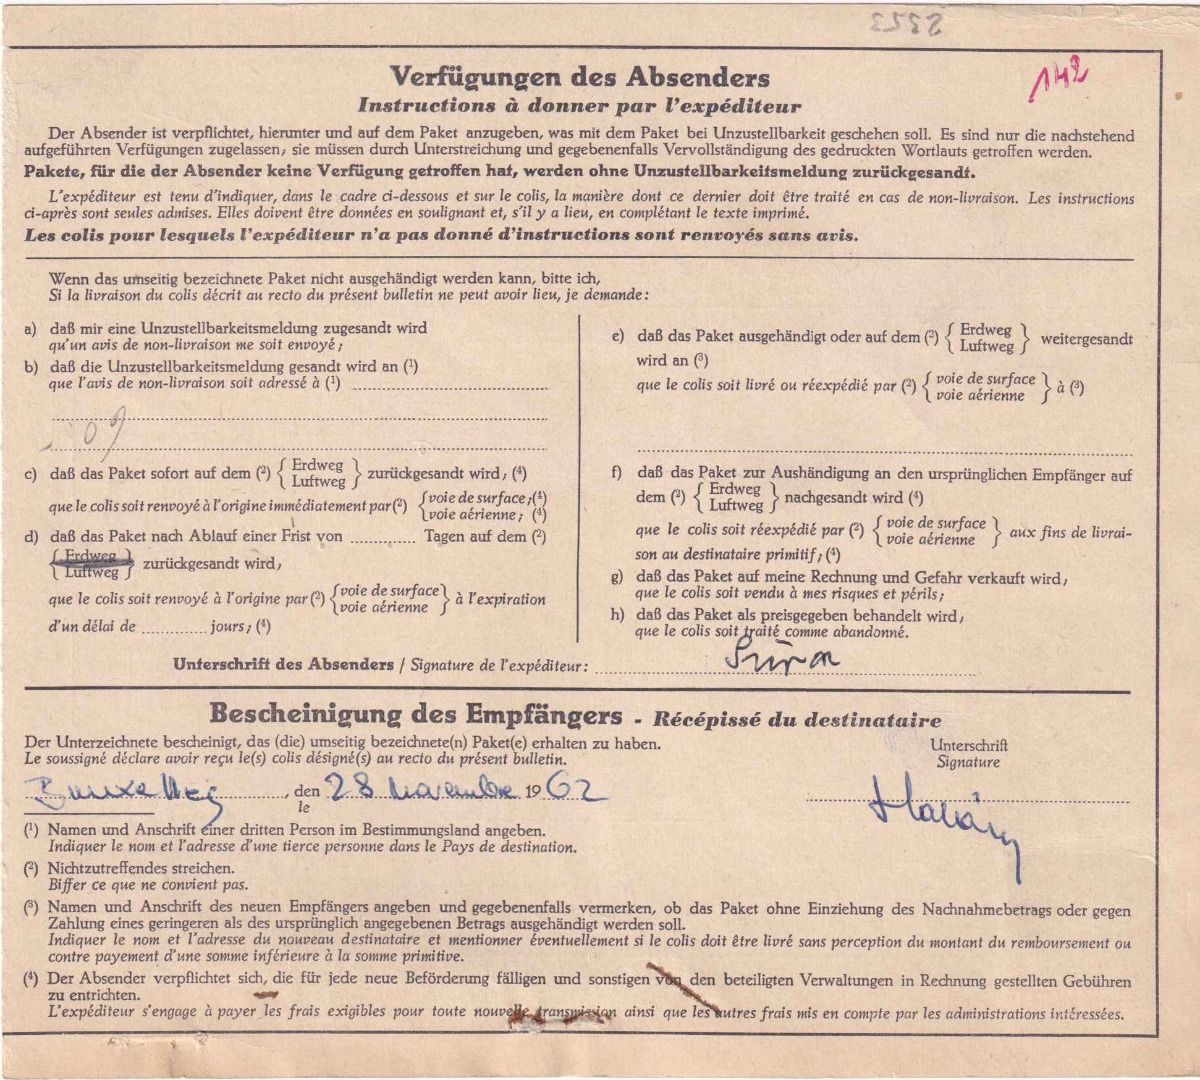 5353
142
Verfügungen des Absenders
Instructions à donner par l'expéditeur
Der Absender ist verpflichtet, hierunter und auf dem Paket anzugeben, was mit dem Paket bei Unzustellbarkeit geschehen soll. Es sind nur die nachstehend
aufgeführten Verfügungen zugelassen; sie müssen durch Unterstreichung und gegebenenfalls Vervollständigung des gedruckten Wortlauts getroffen werden.
Pakete, für die der Absender keine Verfügung getroffen hat, werden ohne Unzustellbarkeitsmeldung zurückgesandt.
L'expéditeur est tenu d'indiquer, dans le cadre ci-dessous et sur le colis, la manière dont ce dernier doit être traité en cas de non-livraison. Les instructions
ci-après sont seules admises. Elles doivent être données en soulignant et, s'il y a lieu, en complétant le texte imprimé.
Les colis pour lesquels l'expéditeur n'a pas donné d'instructions sont renvoyés sans avis.
Wenn das umseitig bezeichnete Paket nicht ausgehändigt werden kann, bitte ich,
Si la livraison du colis décrit au recto du présent bulletin ne peut avoir lieu, je demande:
a) daß mir eine Unzustellbarkeitsmeldung zugesandt wird
qu'un avis de non-livraison me soit envoyé;
b) daß die Unzustellbarkeitsmeldung gesandt wird an (1)
que l'avis de non-livraison soit adressé à (1)
c) daß das Paket sofort auf dem (2) { Erdweg Luftweg } zurückgesandt wird; (4)
que le colis soit renvoyé à l'origine immédiatement par (2) { voie de surface; (4) voie aérienne; (4)
d) daß das Paket nach Ablauf einer Frist von ............ Tagen auf dem (2)
{ Erdweg Luftweg } zurückgesandt wird,
que le colis soit renvoyé à l'origine par (2) { voie de surface voie aérienne } à l'expiration
d'un délai de ............ jours; (4)
e) daß das Paket ausgehändigt oder auf dem (2) { Erdweg Luftweg } weitergesandt
wird an (3)
que le colis soit livré ou réexpédié par (2) { voie de surface voie aérienne } à (3)
f) daß das Paket zur Aushändigung an den ursprünglichen Empfänger auf
dem (2) { Erdweg Luftweg } nachgesandt wird (4)
que le colis soit réexpédié par (2) { voie de surface voie aérienne } aux fins de livrai-
son au destinataire primitif; (4)
g) daß das Paket auf meine Rechnung und Gefahr verkauft wird;
que le colis soit vendu à mes risques et périls;
h) daß das Paket als preisgegeben behandelt wird;
que le colis soit traité comme abandonné.
Unterschrift des Absenders / Signature de l'expéditeur:
Bescheinigung des Empfängers - Récépissé du destinataire
Der Unterzeichnete bescheinigt, das (die) umseitig bezeichnete(n) Paket(e) erhalten zu haben.
Le soussigné déclare avoir reçu le(s) colis désigné(s) au recto du présent bulletin.
Unterschrift
Signature
, den 28 novembre 1962
le
(1) Namen und Anschrift einer dritten Person im Bestimmungsland angeben.
Indiquer le nom et l'adresse d'une tierce personne dans le Pays de destination.
(2) Nichtzutreffendes streichen.
Biffer ce que ne convient pas.
(3) Namen und Anschrift des neuen Empfängers angeben und gegebenenfalls vermerken, ob das Paket ohne Einziehung des Nachnahmebetrags oder gegen
Zahlung eines geringeren als des ursprünglich angegebenen Betrags ausgehändigt werden soll.
Indiquer le nom et l'adresse du nouveau destinataire et mentionner éventuellement si le colis doit être livré sans perception du montant du remboursement ou
contre payement d'une somme inférieure à la somme primitive.
(4) Der Absender verpflichtet sich, die für jede neue Beförderung fälligen und sonstigen von den beteiligten Verwaltungen in Rechnung gestellten Gebühren
zu entrichten.
L'expéditeur s'engage à payer les frais exigibles pour toute nouvelle transmission ainsi que les autres frais mis en compte par les administrations intéressées.